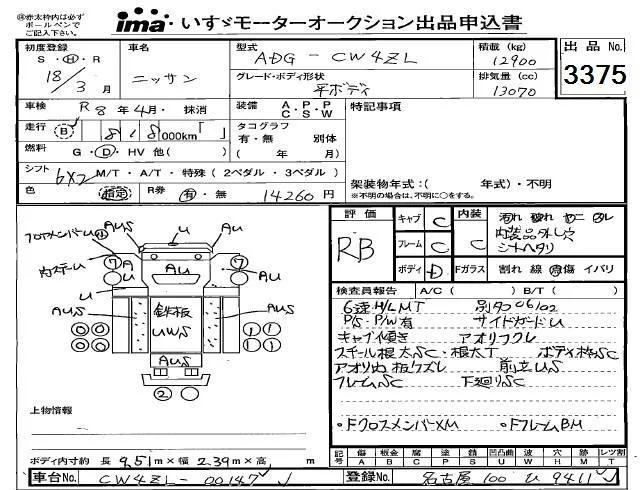 ㊟赤太枠内は必ず
ボールペンで
ご記入下さい。
ima いすゞモーターオークション出品申込書
初度登録 S・H・R 18/3月
車名 ニッサン
型式 ADG-CW4ZL
グレード・ボディ形状 平ボディ
積載 (kg) 12900
排気量 (cc) 13070
出品 No. 3375
車検 R 8年4月・抹消
走行 (B) 818,000km「 」
燃料 G・D・HV 他( )
シフト 6×2 M/T・A/T・特殊 (2ペダル・3ペダル)
色 R券 有・無 14260円
装備 A.P.P
C.S.W
タコグラフ
有・無 別体
( 年 月)
特記事項
架装物年式:( 年式)・不明
※不明の場合は、不明に○をする。
評価 RB
キャブ C
フレーム C
ボディ D
内装 C
Fガラス 割れ 線 飛傷 イバリ
内装品外し穴
シートヘタリ
検査員報告 A/C ( ) B/T ( )
6速H/L MT 別タコ 06/02
P/S P/W有 サイドガードU
キャブ傾き アオリフクレ
スチール根太SC・根太T ボディ枠SC
前立US
フレームSC 下廻りSC
・Fクロスメンバー×M ・FフレームBM
FクロスメンバーU
内ステーU
AUS
U
AU
AU
AU
7
7
U
AUS
AUS
鉄板
UWS
AUS
0 0
0 0
1 1
1 1
2
上物情報
ボディ内寸約 長 9.51m×幅 2.39m×高 m
記号 傷 A 板金 B 腐 C 塗 P 錆 S 凹凸曲 U 波 W 穴 H 跡 M レツ割 T
車台No. CW4ZL-00147
登録No. 名古屋 100 う 9411